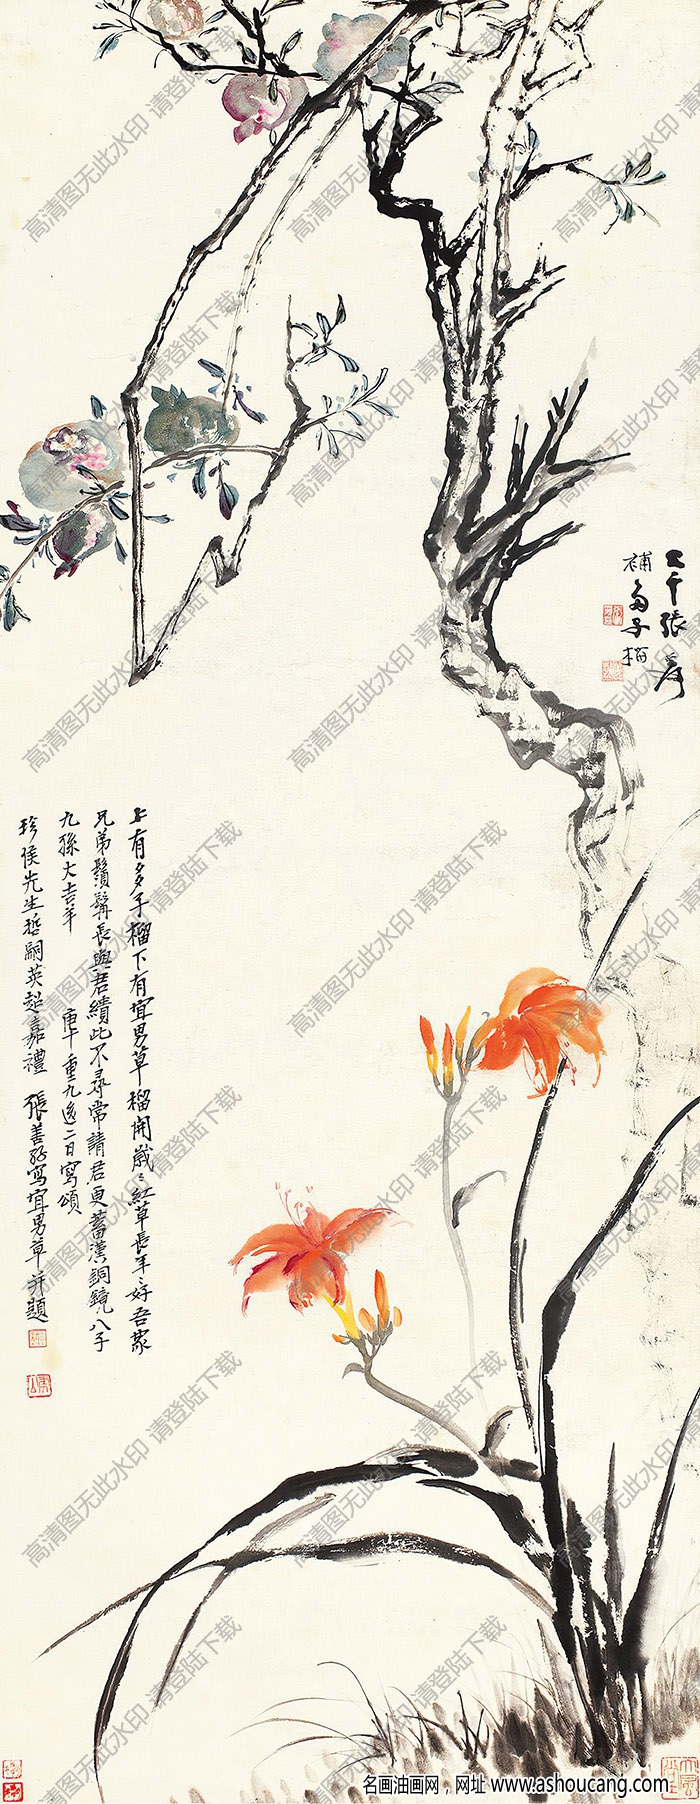 大千張爰
補多子榴
上有多子榴下有宜男草榴開歲〻紅草長年〻好吾家
兄弟鬚髯長與君績此不尋常請君更蓄漢銅鏡八子
九孫大吉羊 庚午重九後二日寫頌
珍侯先生哲嗣英超嘉禮 張善孖寫宜男草并題
高清图无此水印 请登陆下载
名画油画网，网址 www.ashoucang.com